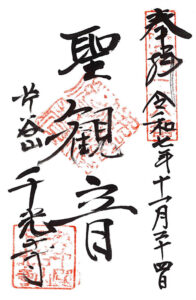 奉拝 令和七年十一月二十四日
聖観音
谷山 千光寺